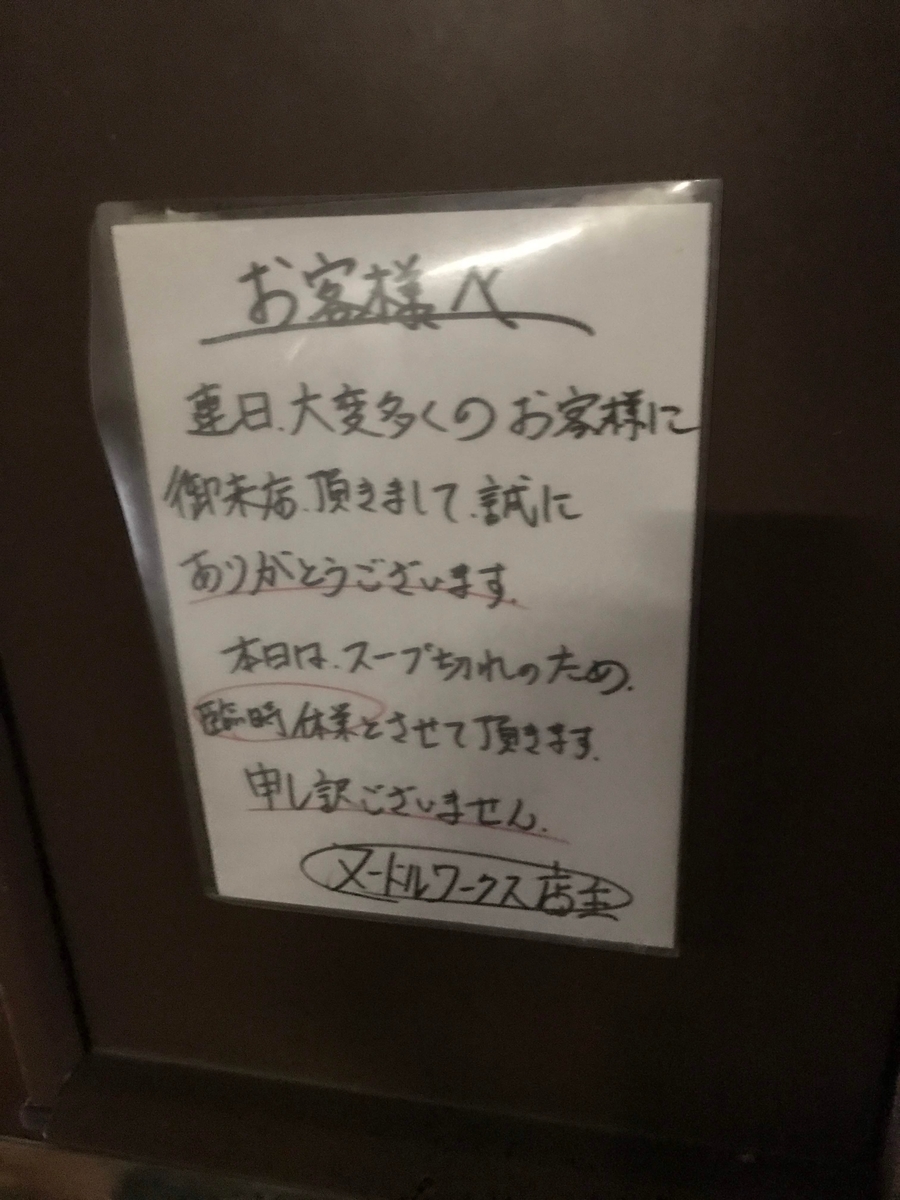 お客様へ
連日、大変多くのお客様に
御来店、頂きまして、誠に
ありがとうございます。
本日は、スープ切れのため、
臨時休業とさせて頂きます。
申し訳ございません。
ヌードルワークス店主